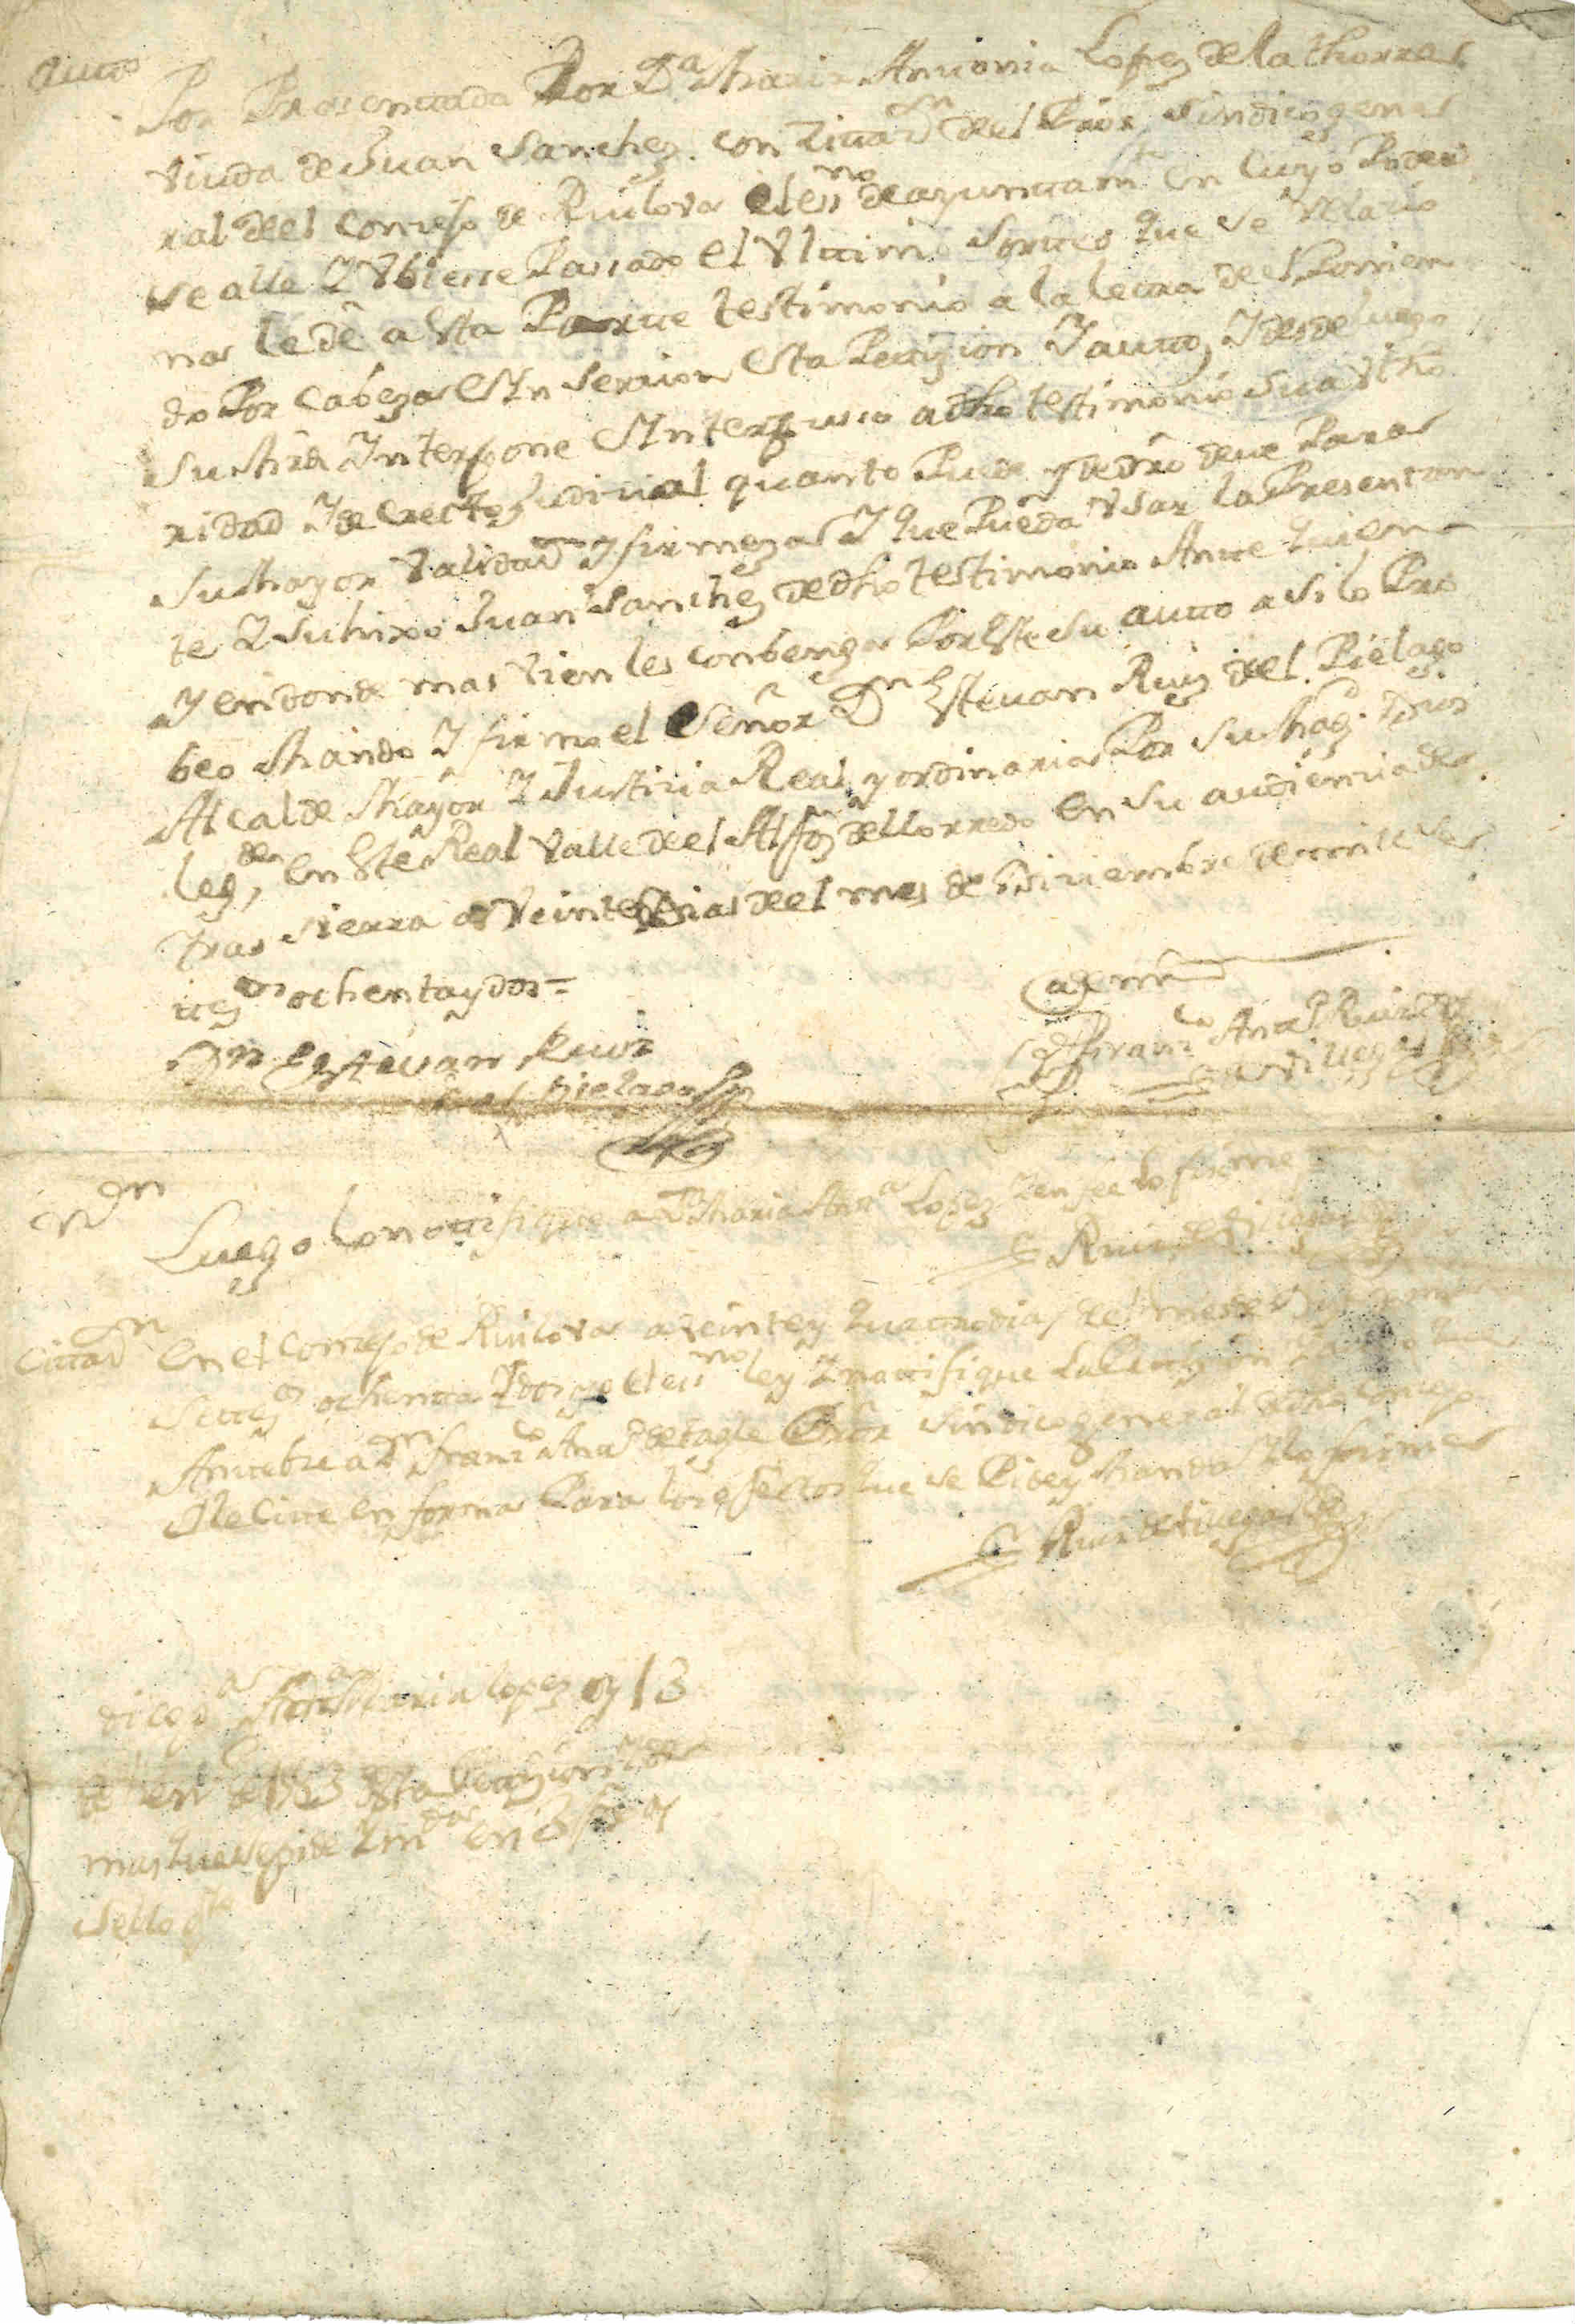 autto
Por Presentada Por Dª Maria Antonia Lopez de la thorre
Viuda de Juan Sanchez. con Zittaon del Pror Sindico gene
ral del Concejo de Ruilova el essno de ayuntamto en cuyo Poder
se alle Y Ubiere Passado el Ulttimo Sorteo que se relacio
na le dê a esta Partte testimonio a la letra de el Ponien
do Por Cabeza e Ynsercion esta Petizion Y autto, Y desde luego
su Mrd Ynterpone e Ynterpuso a dho testimonio su autho
ridad Y decretto Judicial quanto Puede y de dro deve Para
su Mayor Validaon Y firmeza Y que Pueda Usar la Presentan
te Y su hixo Juan Sanchez de dho testimonio Antte quien
Y en donde mas vien les combenga Por Este su autto asi lo Pro
beo Mando Y firmo el Señor Dn Estevan Ruiz del Pielago
Alcalde Mayor Y Justicia Real y ordinaria Por su Magd Dios
legde en Este Real Valle de el Alfoz de Llorredo en su audiencia de
tras sierra a Veinte Dias de el mes de Diziembre de mil se
ttezos ochenta y dos =
Dn Estevan Ruiz
del Pielago
Antte mi
Franco Anto Ruiz de
Non
Luego lo nottifique a Dª Maria Anta Lopez Y en fee lo firme
Ruiz de
Cittaon En el Concejo de Ruilova a veinte y quatro dias del mes de
settezos ochenta Y dos yo el essno ley Y nottifique la Petizion Y autto que
Antecede a Dn Franco Anto de tagle Pror Sindico general de dho Concejo
Y le Citte en forma Para los efecttos que se Pide y Manda Y lo firme
Ruiz de
Maria Lopez oy 13
de en de 1783 esta Petizion Y
mas que se pide Y en
sello qto